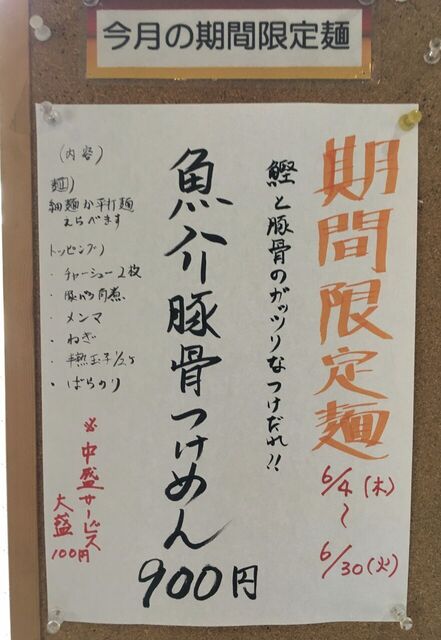 今月の期間限定麺
期間限定麺
6/4(木)
〜
6/30(火)
鰹と豚骨のガッツリなつけだれ!!
魚介豚骨つけめん
900円
(内容)
麺)
細麺か平打麺
えらべます
トッピング)
・チャーシュー2枚
・豚バラ角煮
・メンマ
・ねぎ
・半熟玉子1/2ヶ
・ばらのり
※中盛サービス
大盛
100円